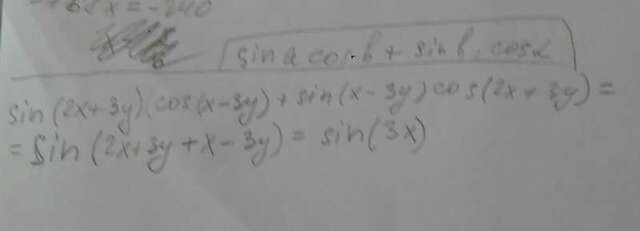 x = -240
sin α cos b + sin b · cos α
sin (2x+3y) cos(x-3y) + sin(x-3y) cos(2x+3y) =
= sin (2x+3y+x-3y) = sin(3x)